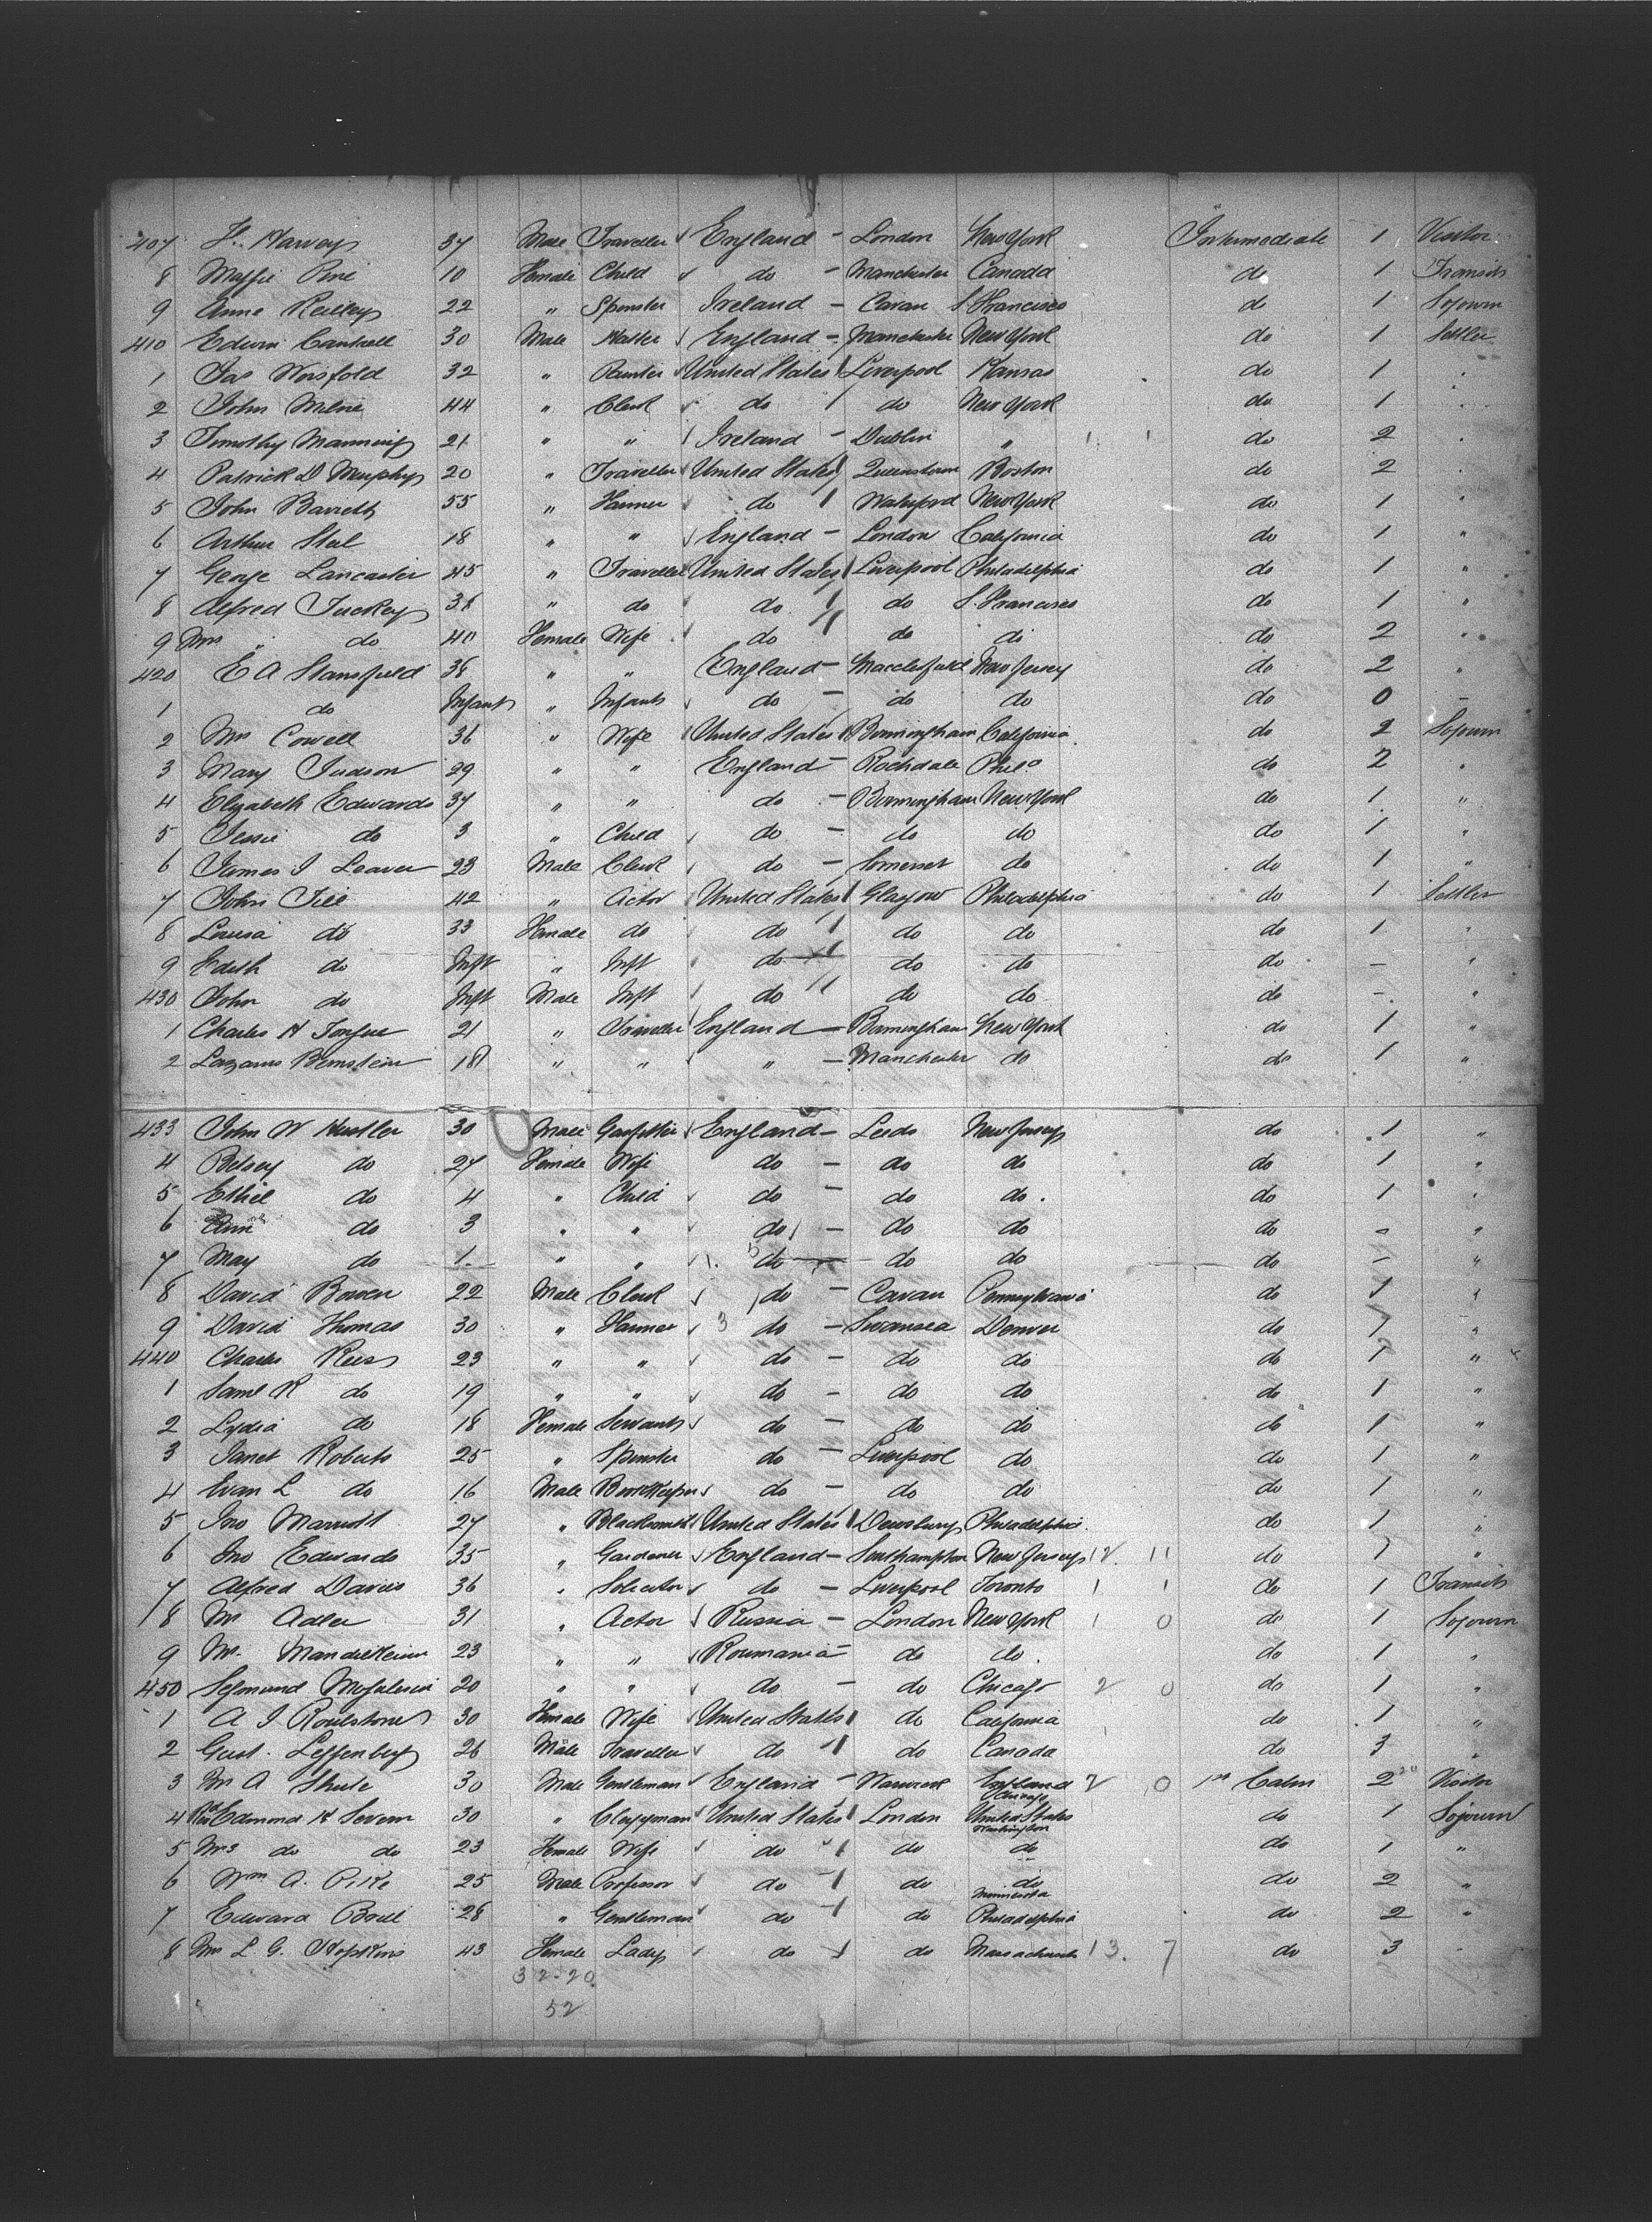 407 H. Harvey 37 Male Traveller England - London New York Intermediate 1 Visitor
8 10 Female Child do - Manchester Canada do 1 Transit
9 Anne Reilley 22 " Spinster Ireland - Cavan S. Francisco do 1 Sojourn
410 Edwin Cantrell 30 Male England - Manchester New York do 1 Settler
1 Jas Worsfold 32 " Painter United States Liverpool Kansas do 1 "
2 John Milne 44 " Clerk do do New York do 1 "
3 Timothy Manning 21 " " Ireland - Dublin " 1 1 do 2 "
4 Patrick D Murphy 20 " Traveller United States Queenstown Boston do 2 "
5 John Barrett 55 " Farmer do Waterford New York do 1 "
6 Arthur 18 " " England - London California do 1 "
7 George Lancaster 45 " Traveller United States Liverpool Philadelphia do 1 "
8 Alfred Tuckey 38 " do do do S. Francisco do 1 "
9 Mrs " do 40 Female Wife do do do do 2 "
420 E A Stansfield 36 " " England - Macclesfield New Jersey do 2 "
1 do Infant " Infant do - do do do 0 -
2 Mrs Cowell 36 " Wife United States Birmingham California do 2 Sojourn
3 Mary Judson 29 " " England - Rochdale Phila do 2 "
4 Elizabeth Edwards 37 " " do - Birmingham New York do 1 "
5 Jessie do 3 " Child do - do do do 1 "
6 James J Leaver 23 Male Clerk do - Somerset do do 1 "
7 John Till 42 " Actor United States Glasgow Philadelphia do 1 Settler
8 Louisa do 33 Female do do do do do 1 "
9 Edith do Inft " Inft do do do do - "
430 John do Inft Male Inft do do do do - "
1 Charles H Tongue 21 " Traveller England - Birmingham New York do 1 "
2 Lazarus Bernstein 18 " " " - Manchester do do 1 "
433 John W Hustler 30 Male Gasfitter England - Leeds New Jersey do 1 "
4 Betsey do 27 Female Wife do - do do do 1 "
5 Ethel do 4 " Child do - do do do 1 "
6 Ann do 3 " " do - do do do - "
7 May do 1 " " do - do do do - "
8 David Bowen 22 Male Clerk do - Cavan Pennsylvania do 1 "
9 David Thomas 30 " Farmer 3 do - Swansea Denver do 1 "
440 Charles Rees 23 " " do - do do do 1 "
1 Saml R do 19 " " do - do do do 1 "
2 Lydia do 18 Female Servant do - do do do 1 "
3 Janet Roberts 25 " Spinster do - Liverpool do do 1 "
4 Evan L do 16 Male Bookkeeper do - do do do 1 "
5 Jno Marriott 27 " Blacksmith United States Dewsbury Philadelphia do 1 "
6 Jno Edwards 35 " Gardener England - Southampton New Jersey 12 11 do 1 "
7 Alfred Davies 36 " Solicitor do - Liverpool Toronto 1 1 do 1 Transit
8 Mr Adler 31 " Actor Russia - London New York 1 0 do 1 Sojourn
9 Mr. Mandelkern 23 " " Roumania - do do do 1 "
450 20 " " do - do Chicago 2 0 do 1 "
1 A J Roulstone 30 Female Wife United States do California do 1 "
2 Gust. Leffenberg 26 Male Traveller do do Canada do 3 "
3 Mr A Shute 30 Male Gentleman England - Warwick England 2 0 1st Cabin 2 Visitor
Chicago
4 Rev Edmond H 30 " Clergyman United States London United States do 1 Sojourn
Washington
5 Mrs do do 23 Female Wife do do do do 1 "
6 Wm A. 25 Male Professor do do do do 2 "
Minnesota
7 Edward 28 " Gentleman do do Philadelphia do 2 "
8 Mrs L. G. Hopkins 43 Female Lady do do Massachusetts 13. 7 do 3 "
32-20
52